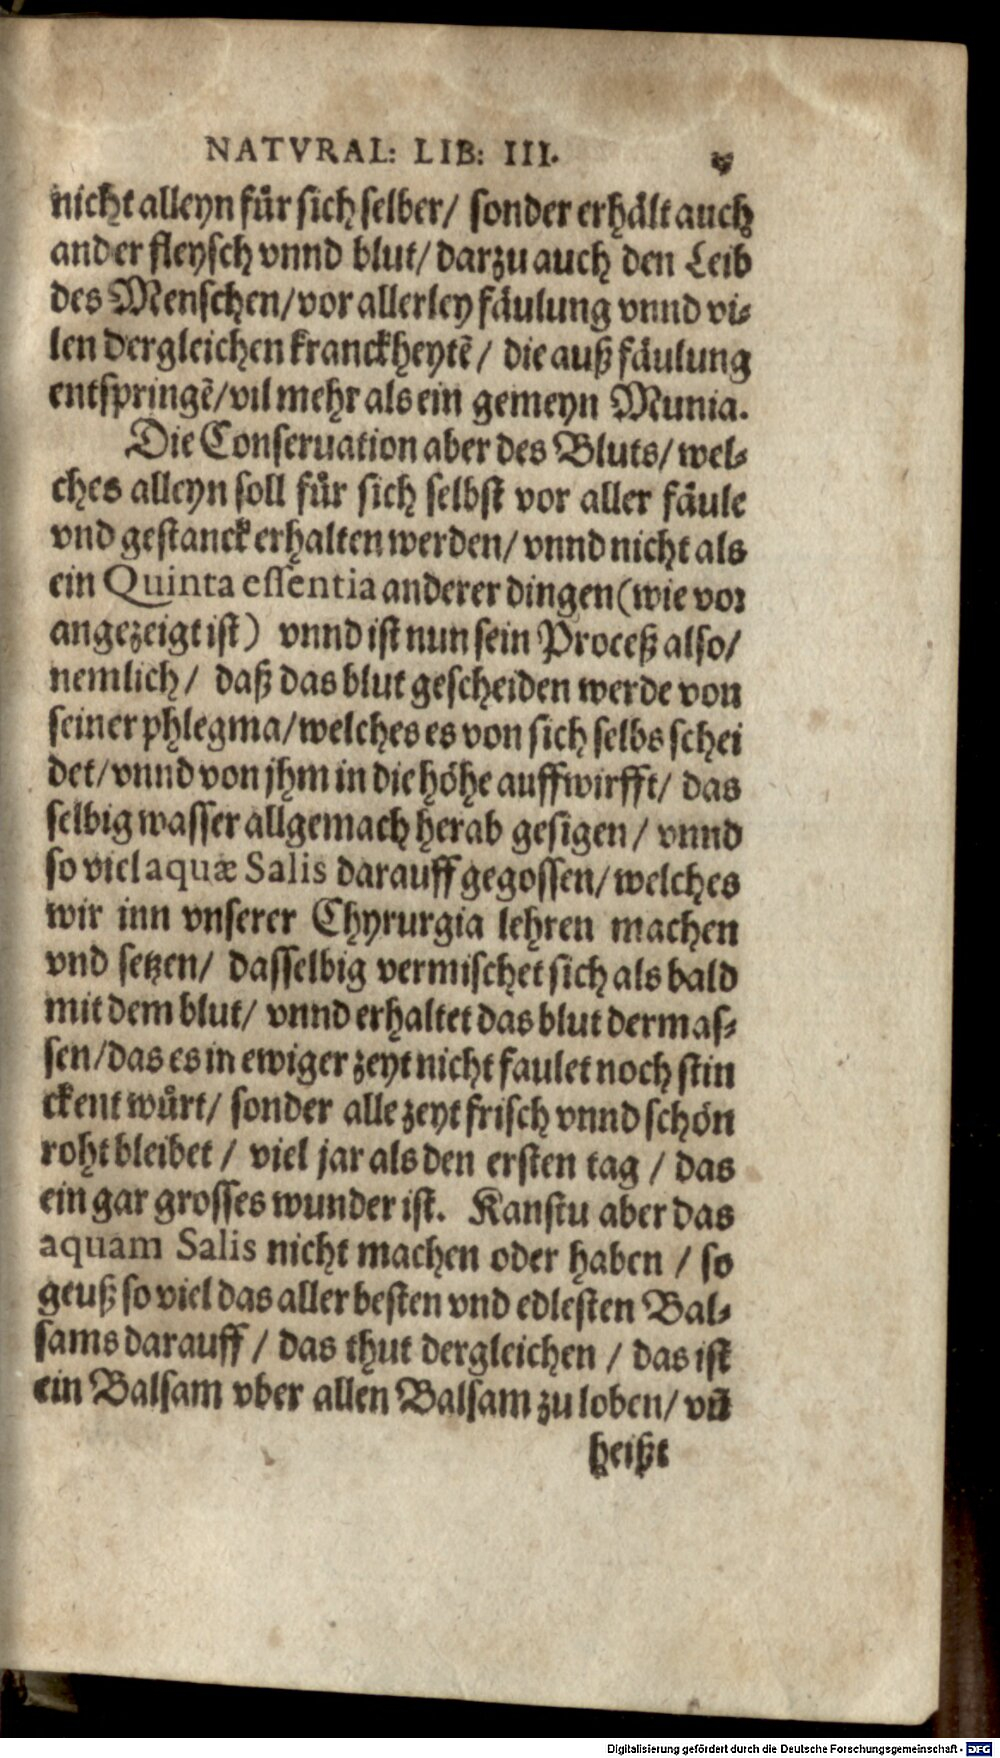 NATVRAL: LIB: III.
nicht alleyn für sich selber/ sonder erhält auch
ander fleysch vnnd blut/ darzu auch den Leib
des Menschen/ vor allerley fäulung vnnd vi-
len dergleichen kranckheytẽ/ die auß fäulung
entspringẽ/ vil mehr als ein gemeyn Munia.
Die Conseruation aber des Bluts/ wel-
ches alleyn soll für sich selbst vor aller fäule
vnd gestanck erhalten werden/ vnnd nicht als
ein Quinta essentia anderer dingen (wie vor
angezeigt ist) vnnd ist nun sein Proceß also/
nemlich/ daß das blut gescheiden werde von
seiner phlegma/ welches es von sich selbs schei
det/ vnnd von jhm in die höhe auffwirfft/ das
selbig wasser allgemach herab gesigen/ vnnd
so viel aquæ Salis darauff gegossen/ welches
wir inn vnserer Chyrurgia lehren machen
vnd setzen/ dasselbig vermischet sich als bald
mit dem blut/ vnnd erhaltet das blut dermas-
sen/ das es in ewiger zeyt nicht faulet noch stin
ckent würt/ sonder alle zeyt frisch vnnd schön
roht bleibet/ viel jar als den ersten tag/ das
ein gar grosses wunder ist. Kanstu aber das
aquam Salis nicht machen oder haben/ so
geuß so viel das aller besten vnd edlesten Bal-
sams darauff/ das thut dergleichen/ das ist
ein Balsam vber allen Balsam zu loben/ vñ
heißt
Digitalisierung gefördert durch die Deutsche Forschungsgemeinschaft - DFG